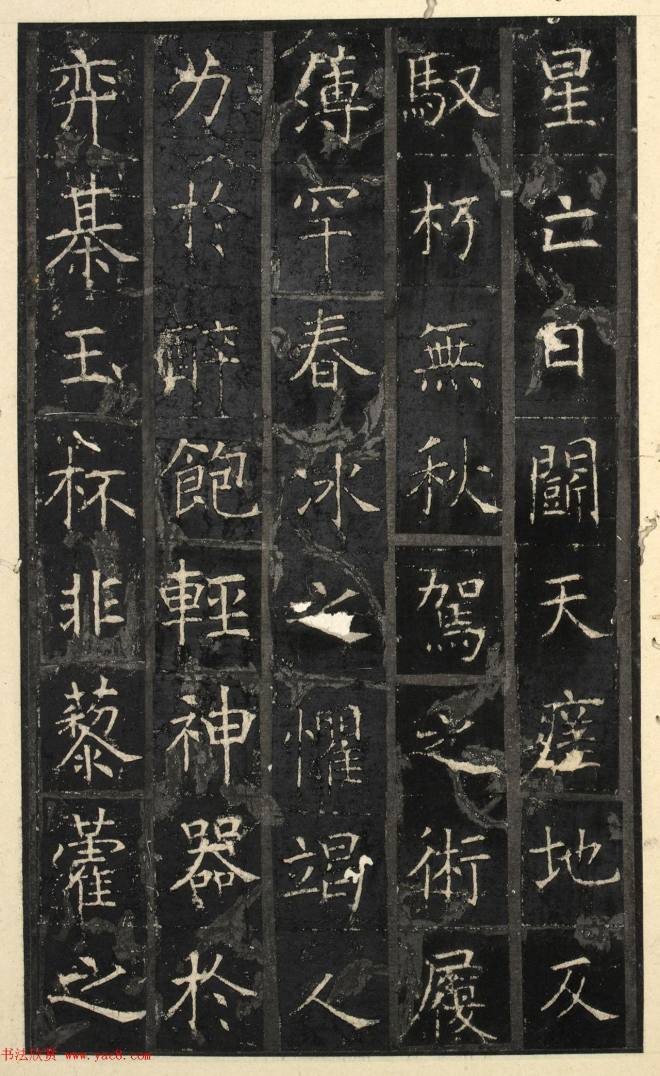 星亡日鬪天瘥地仄
馭朽無秋駕之術履
薄罕春冰之懼竭人
力於醉飽輕神器於
弈棊玉杯非藜藿之
书法欣赏 www.yac8.com